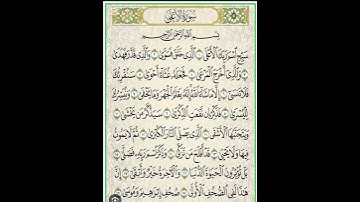 سورة الأعلى
بسم الله الرحمن الرحيم
سبح اسم ربك الأعلى ۝ الذي خلق فسوى ۝ والذي قدر فهدى
۝ والذي أخرج المرعى ۝ فجعله غثاء أحوى ۝ سنقرئك
فلا تنسى ۝ إلا ما شاء الله إنه يعلم الجهر وما يخفى ۝ ونيسرك
لليسرى ۝ فذكر إن نفعت الذكرى ۝ سيذكر من يخشى ۝
ويتجنبها الأشقى ۝ الذي يصلى النار الكبرى ۝ ثم لا يموت
فيها ولا يحيى ۝ قد أفلح من تزكى ۝ وذكر اسم ربه فصلى ۝
بل تؤثرون الحياة الدنيا ۝ والآخرة خير وأبقى ۝ إن
هذا لفي الصحف الأولى ۝ صحف إبراهيم وموسى ۝